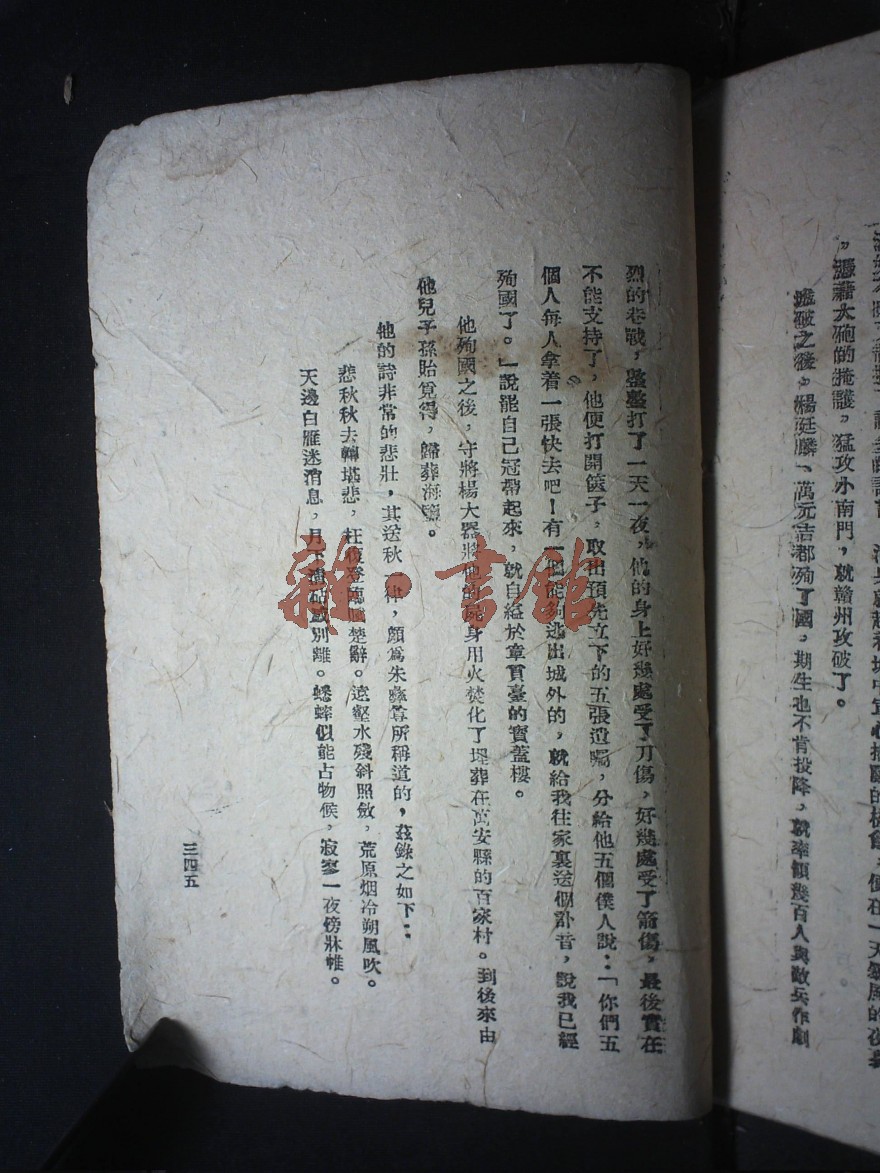 ”憑藉大砲的掩護，猛攻小南門，就贛州攻破了。
破之後，楊廷麟、萬元吉都殉了國，期生也不肯投降，就率領幾百人與敵兵作劇
烈的巷戰，整整打了一天一夜，他的身上好幾處受了刀傷，好幾處受了箭傷，最後實在
不能支持了，他便打開篋子，取出預先立下的五張遺囑，分給他五個僕人說：「你們五
個人每人拿着一張快去吧！有一個能夠逃出城外的，就給我往家裏送個訃音，說我已經
殉國了。」說罷自己冠帶起來，就自縊於章貢臺的寶蓋樓。
他殉國之後，守將楊大器將他的屍身用火焚化了埋葬在萬安縣的百家村。到後來由
他兒子孫貽覓得，歸葬海鹽。
他的詩非常的悲壯，其送秋一律，頗爲朱彝尊所稱道的，茲錄之如下：
悲秋秋去轉堪悲，枉復登臨楚辭。遠壑水殘斜照斂，荒原烟冷朔風吹。
天邊白雁迷消息，月下清砧感別離。蟋蟀似能占物候，寂寥一夜傍牀帷。
三四五
雜·書館